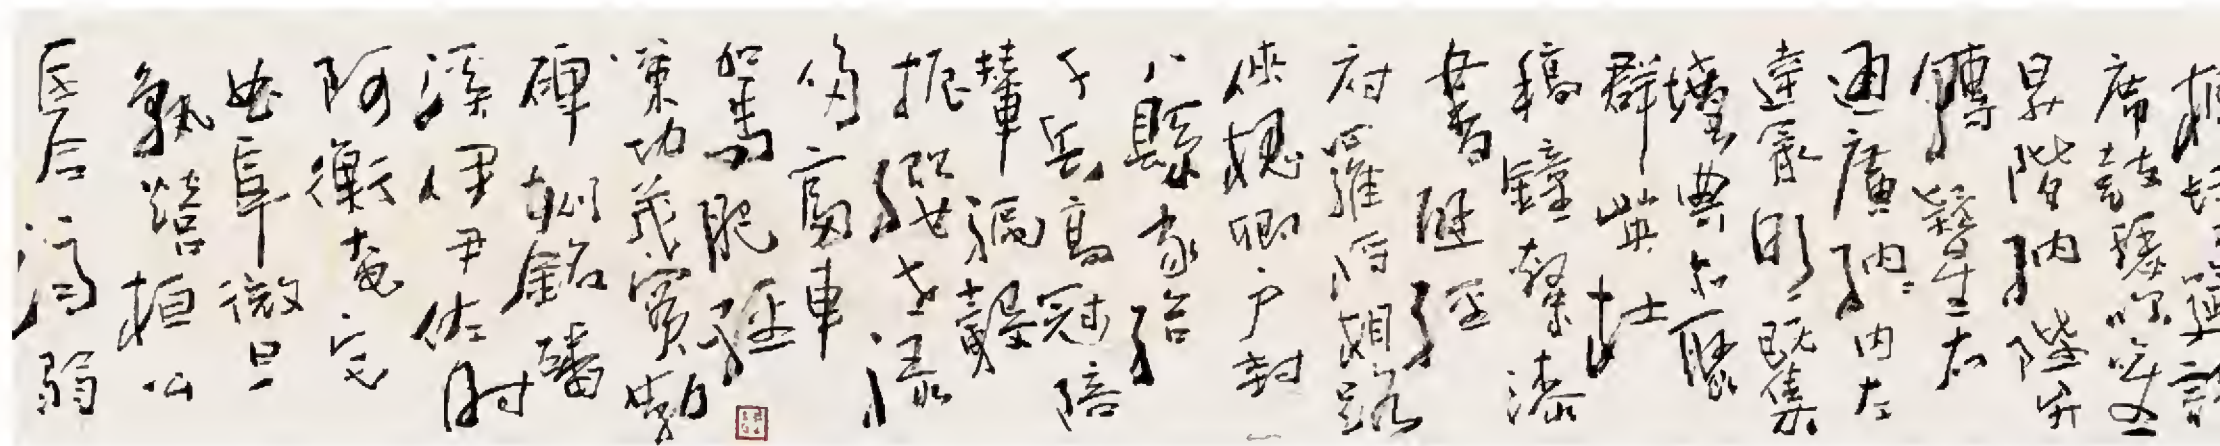 席鼓瑟吹笙
昇階納陛弁
轉疑星右
通廣納內左
達承明既集
墳典亦聚
群英杜
稿鐘隸漆
書壁經
府羅將相路
俠槐卿戶封
八縣家給
千兵高冠陪
輦驅轂
振纓世祿
侈富車
駕肥輕
策功茂實勒
碑刻銘磻
溪伊尹佐時
阿衡奄宅
曲阜微旦
孰營桓公
匡合濟弱